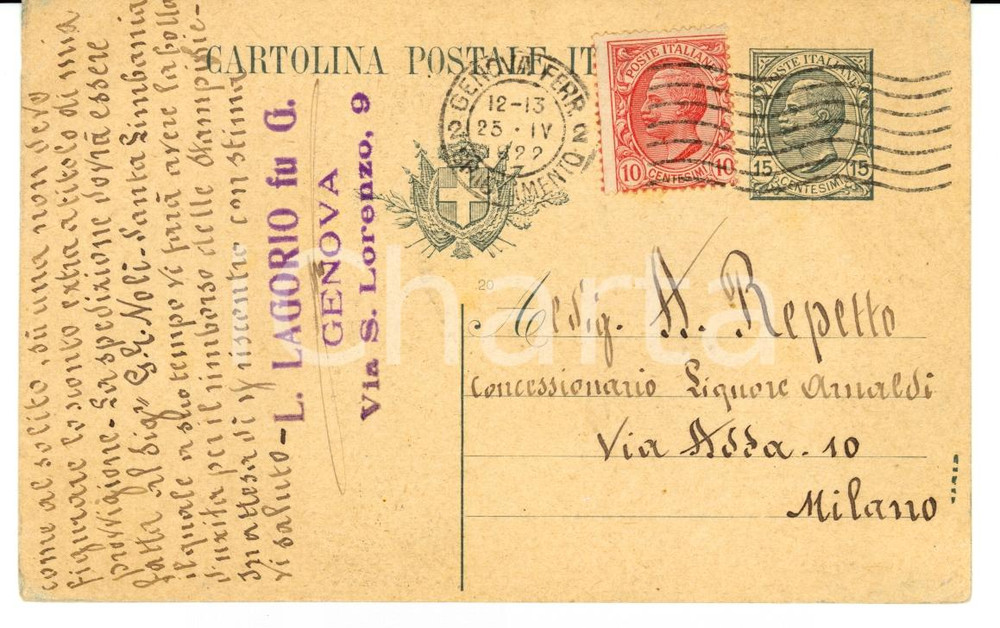 CARTOLINA POSTALE IT
GENOVA FERR.
12-13
25·IV
1922
2 2
POSTE ITALIANE
10 CENTESIMI 10
POSTE ITALIANE
15 CENTESIMI 15
20
Al Sig. A. Repetto
Concessionario Liquore Arnaldi
Via Assa. 10
Milano
L. LAGORIO fu G.
GENOVA
Via S. Lorenzo, 9
come al solito, su una non devo
figurare lo sconto extra a titolo di mia
provvigione - La spedizione dovrà essere
fatta al Sig. G. L. Noli - Santa Limbania
il quale a suo tempo vi farà avere la bolla
d'uscita per il rimborso delle stampiglie -
In attesa di Vs/ riscontro con stima
Vi saluto -
Charta